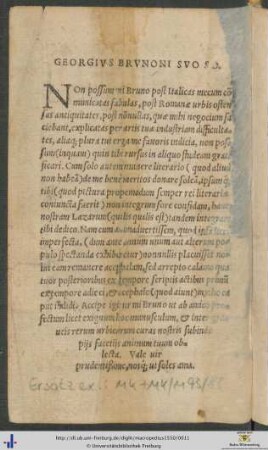 GEORGIVS BRVNONI SVO S.D.
NOn possum mi Bruno post Italicas mecum cō
municatas fabulas, post Romanæ urbis osten
sas antiquitates, post nōnullas, quæ mihi negocium fa
ciebant, explicatas per artis tuæ industriam difficulta
tes, aliaq; plura tui erga me fauoris indicia, non pos
sum (inquam) quin tibi rursus in aliquo studeam gra
ficari. Cum solo autem munere literario (quod aliud
non habeā) de me bene meritos donare soleā, ipsum q;
tibi (quod pictura propemodum semper rei literariæ
coniuncta fuerit) non integrum fore confidam, hunc
nostrum Lazarum (qualis qualis est) tandem integrum
tibi dedico. Nam cum animaduertissem, quod
imperfecta, (dum ante annum unum aut alterum po-
pulo spectanda exhiberetur) nonnullis placuisset no
lui eam remanere ancipitem, sed arrepto calamo
tuor posterioribus ex tempore scriptis actibus primū
ex tempore adieci, et acephalo (quod aiunt) ca
put
fectum licet exiguum hoc munusculum, &
ueis rerum urbicarum curas nostris subinde
pijs facetijs animum tuum ob
lecta. Vale uir
prudentissime, nosq; ut soles ama.
http://dl.ub.uni-freiburg.de/diglit/macropedius1550/0011
© Universitätsbibliothek Freiburg